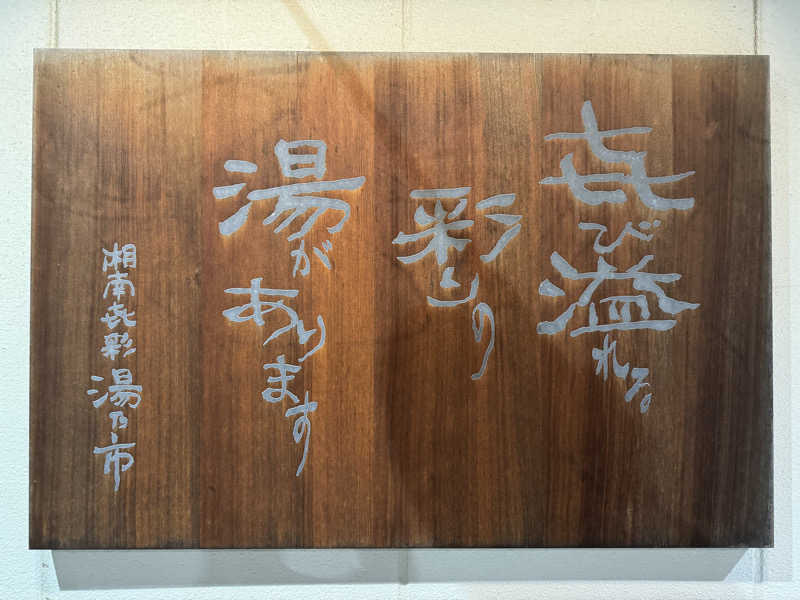 㐂び溢れる
彩り
湯があります
湘南㐂彩湯乃市